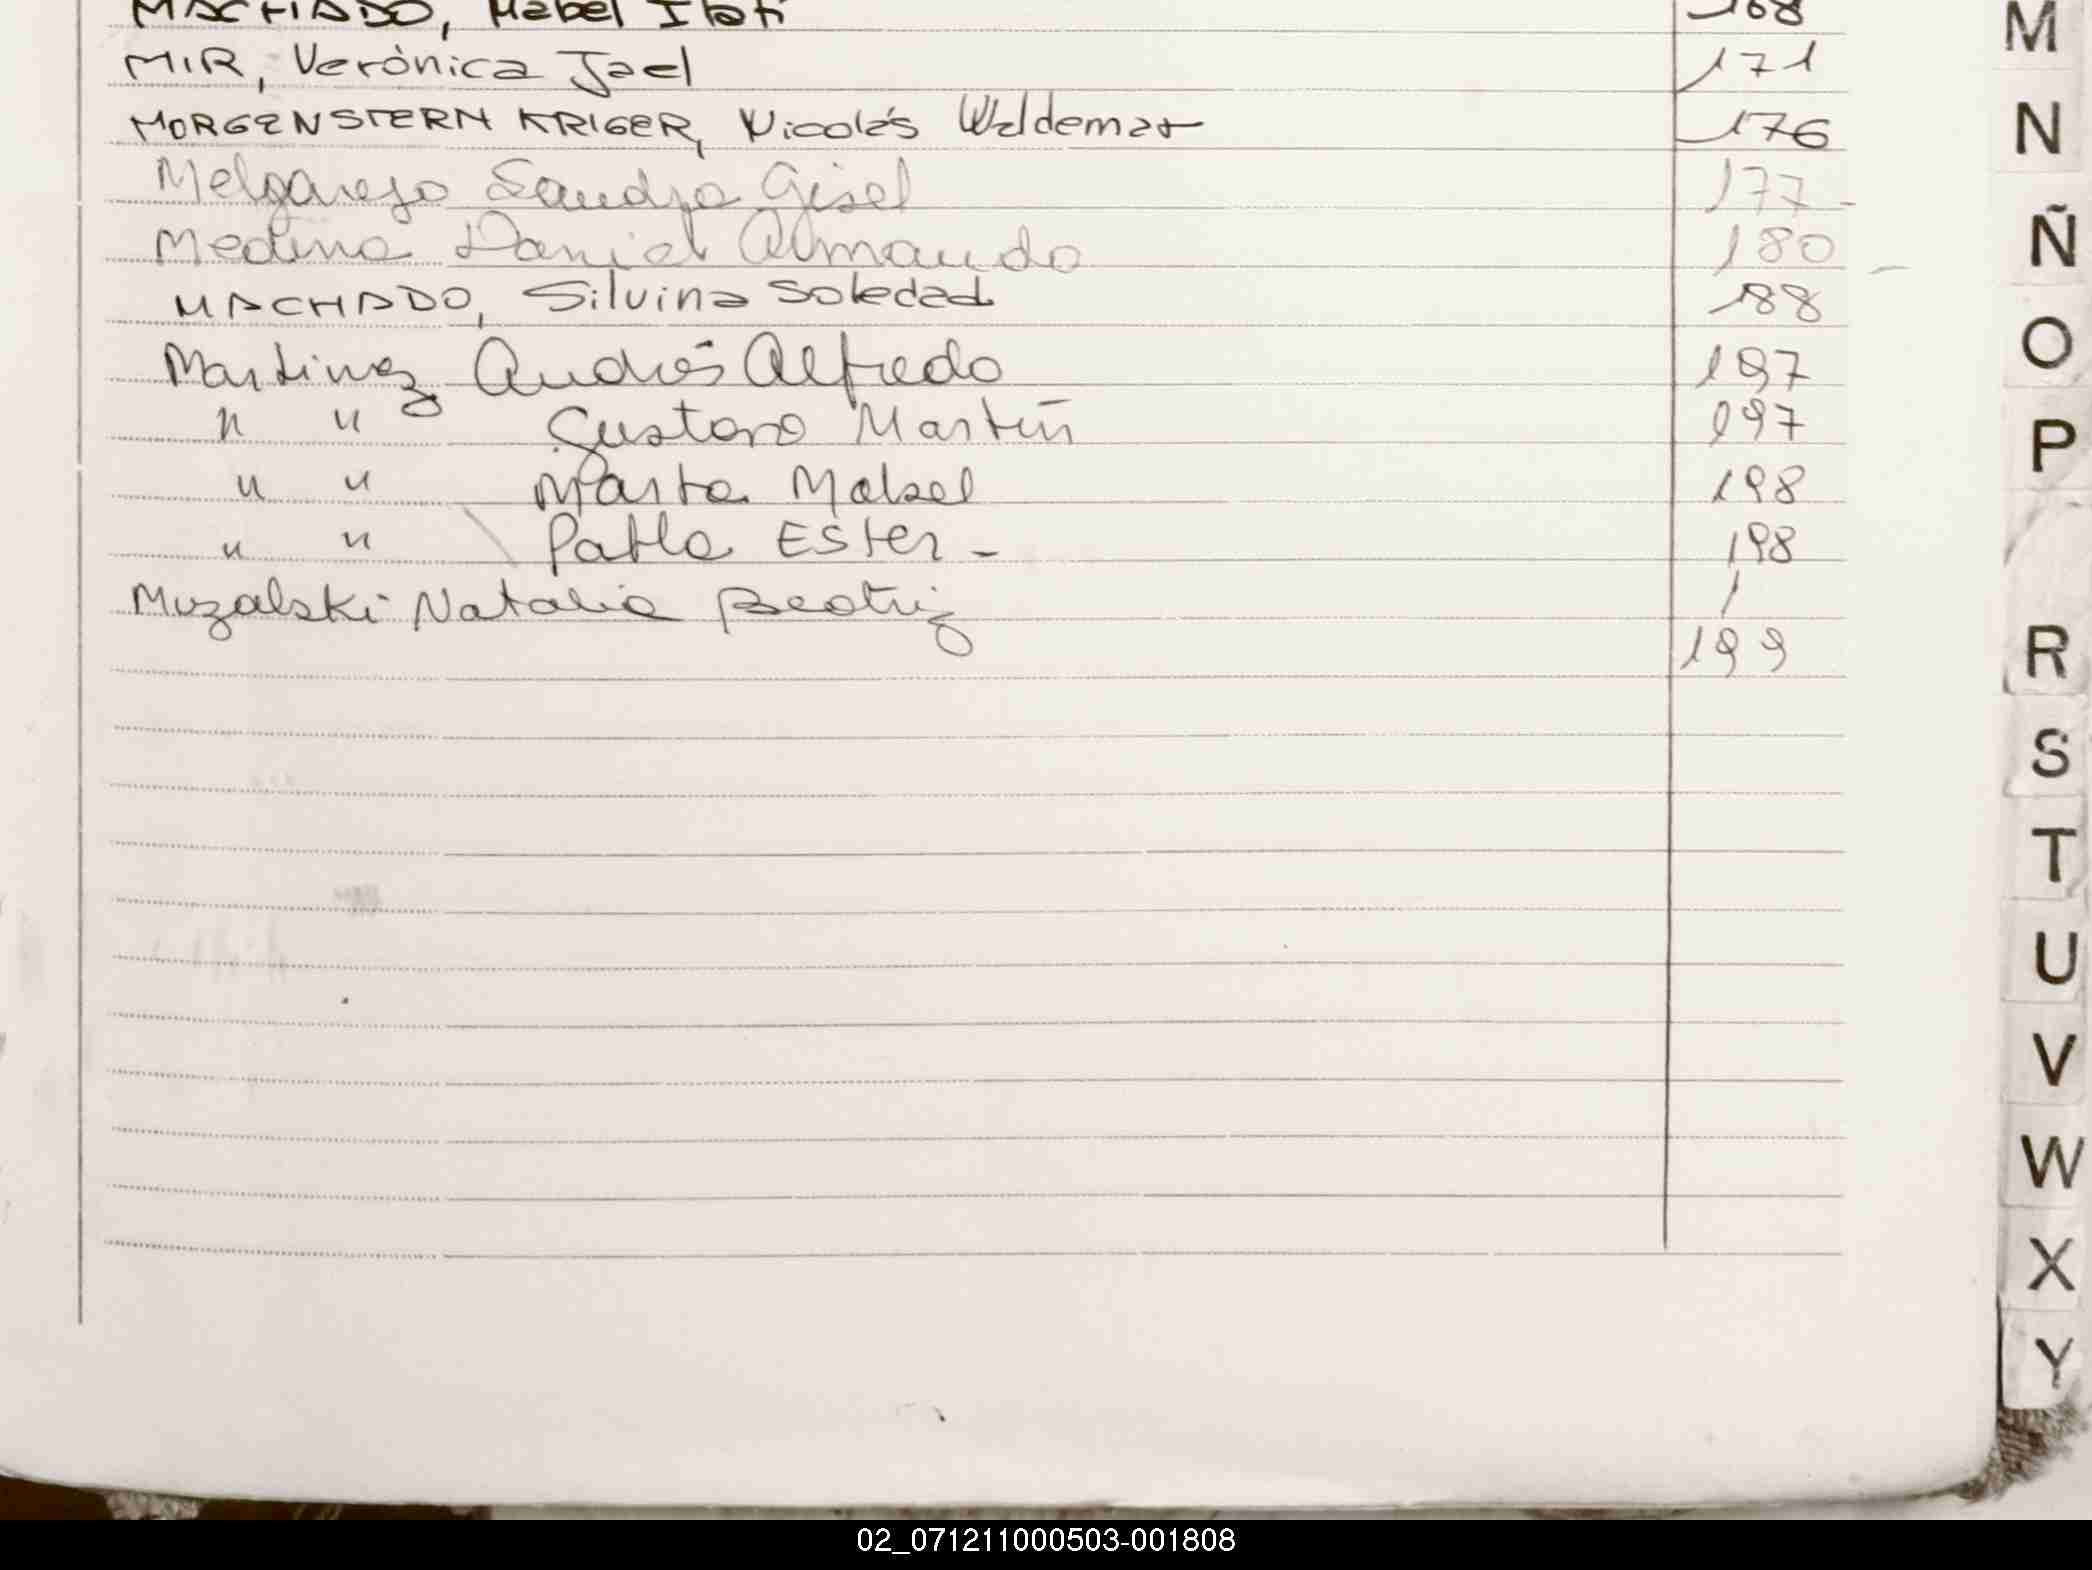 MACHADO, Mabel Itatí 168
MIR, Verónica Jael 171
MORGENSTERN KRIGER, Nicolás Waldemar 176
Melgarejo Sandra Gisel 177-
Medina Daniel Armando 180
MACHADO, Silvina Soledad 188
Martinez Andrés Alfredo 197
" " Gustavo Martín 197
" " Marta Mabel 198
" " Pabla Ester - 198
Muzalski Natalia Beatriz /
199
M
N
Ñ
O
P
R
S
T
U
V
W
X
Y
02_071211000503-001808